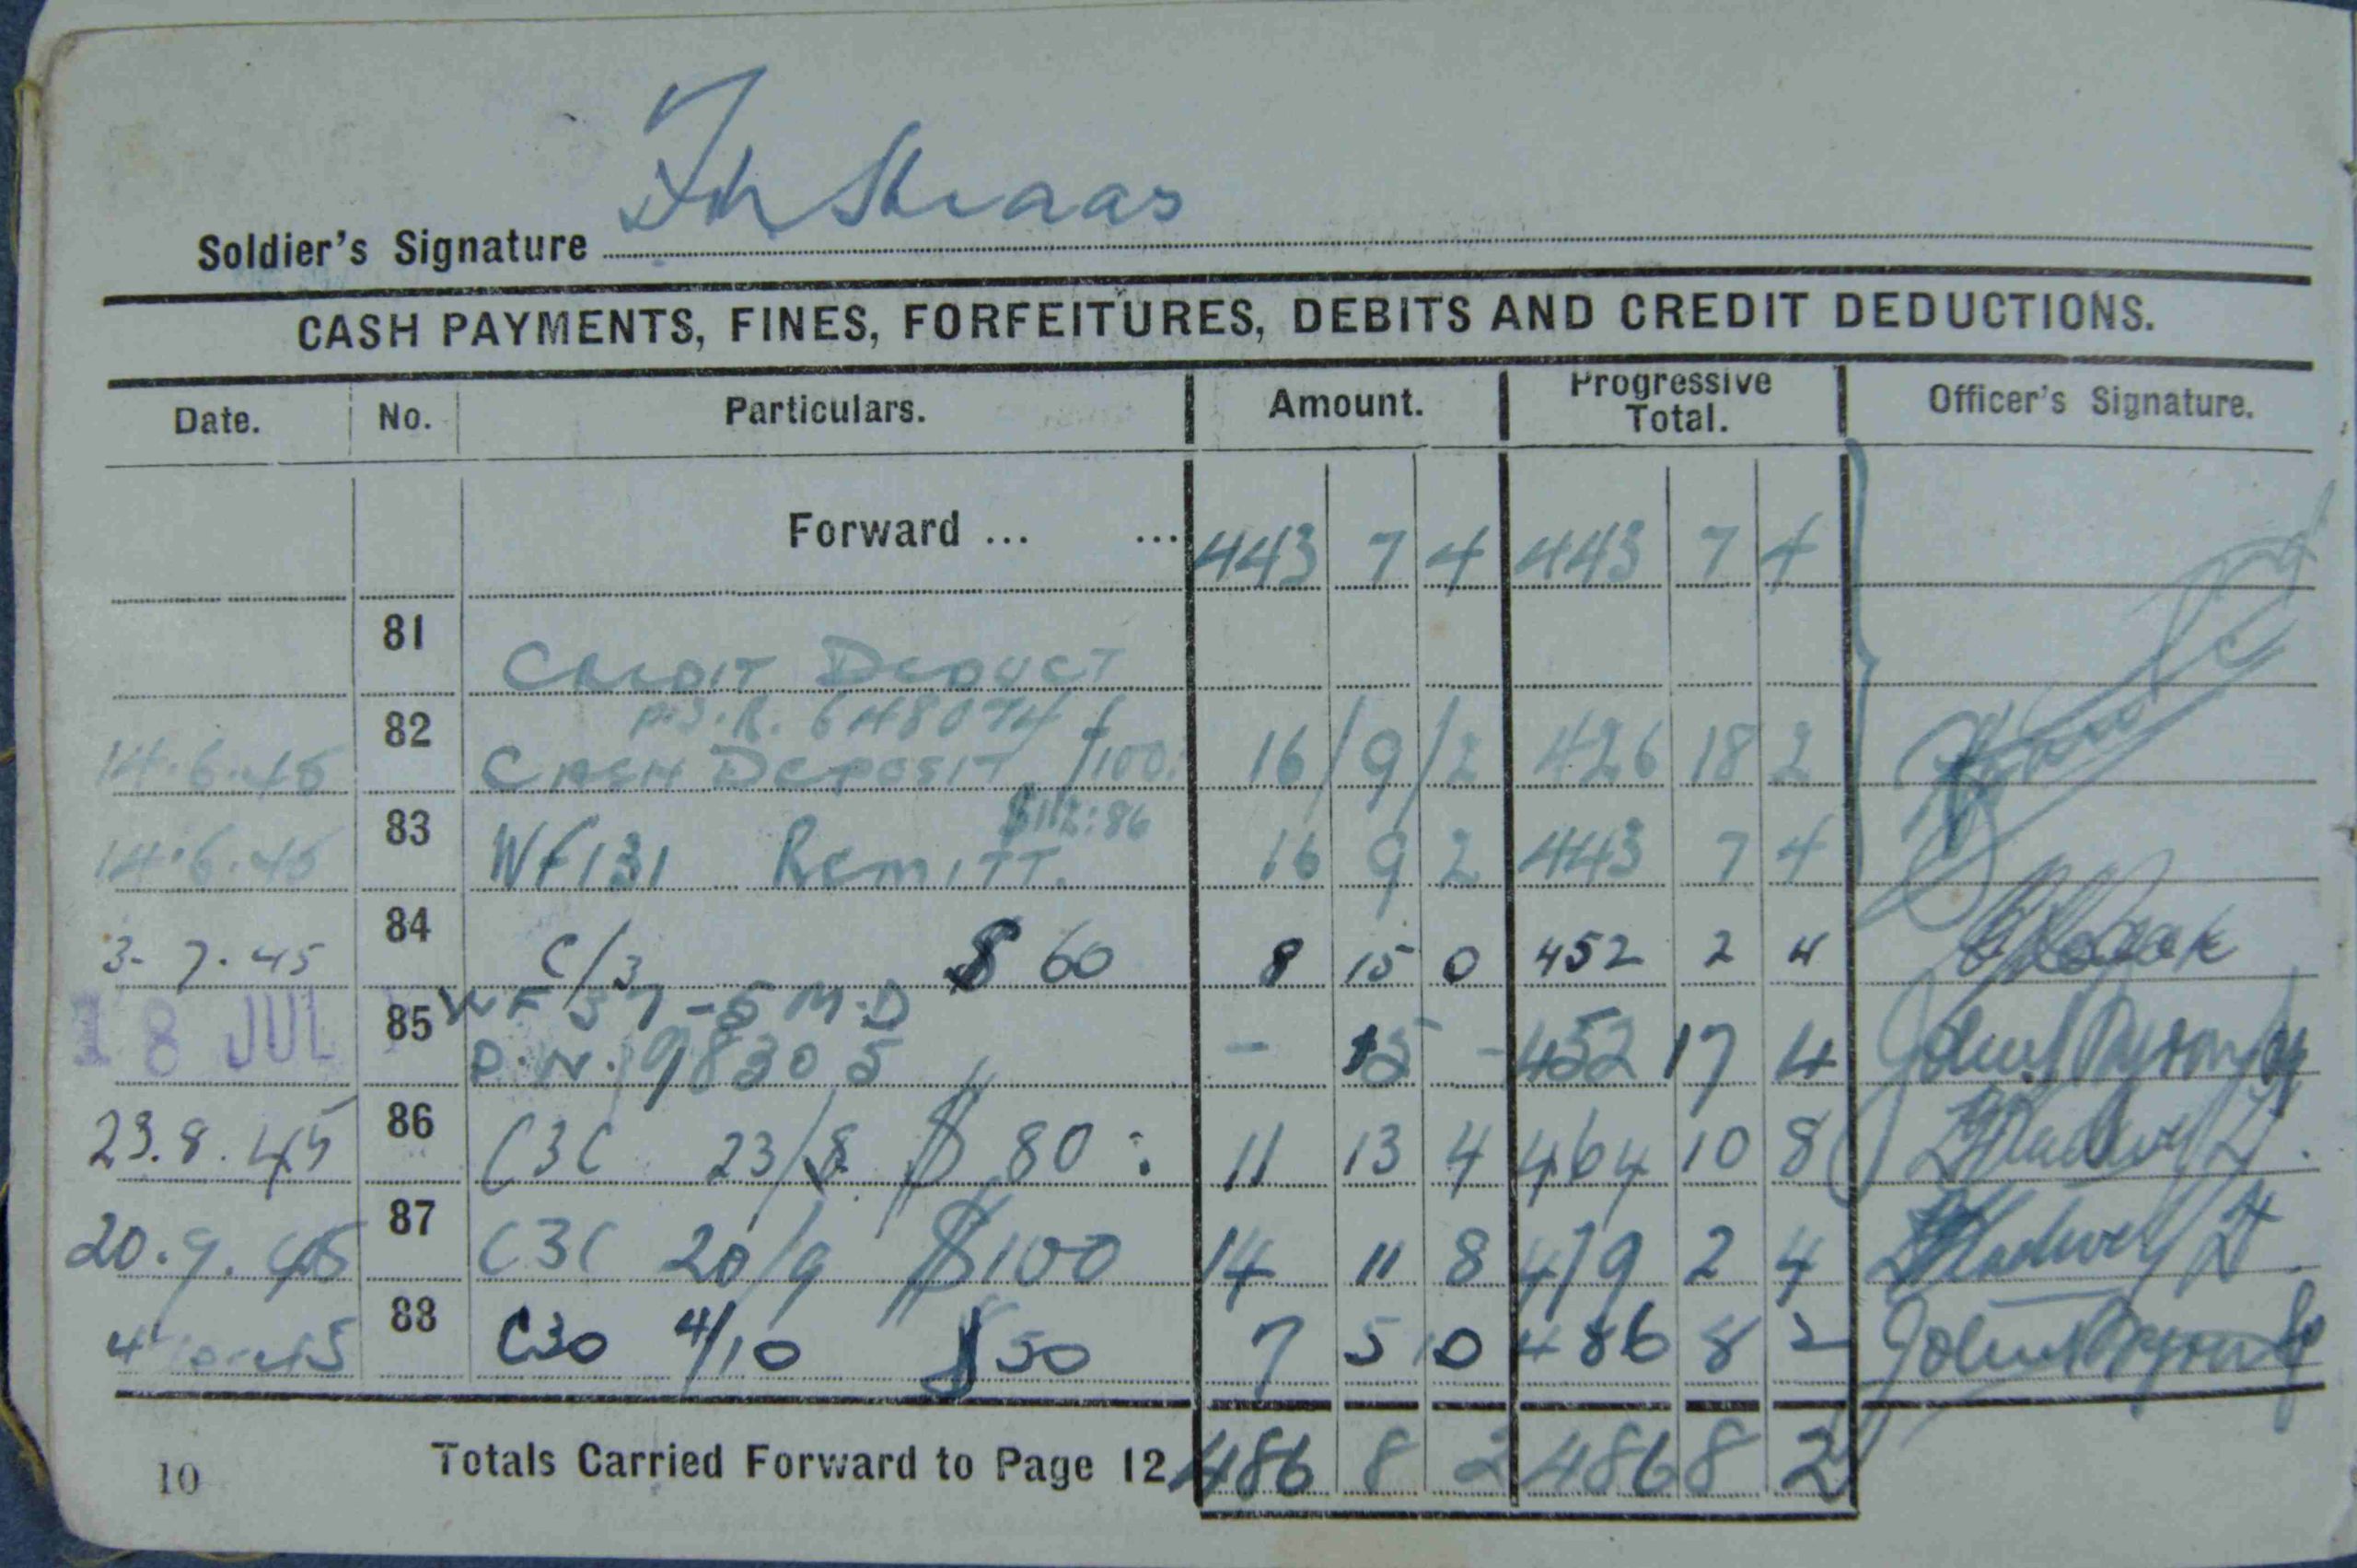 Soldier's Signature
CASH PAYMENTS, FINES, FORFEITURES, DEBITS AND CREDIT DEDUCTIONS.
Date. No. Particulars. Amount. Progressive Total. Officer's Signature.
Forward ... ... 443 7 4 443 7 4
81 CREDIT DEDUCT
P.S.R. 648074
14.6.45 82 CASH DEPOSIT £ /100: 16/9/2 426 18 2
$112:86
14.6.45 83 WF131 REMITT. 16 9 2 443 7 4
3-7.45 84 C/3 $ 60 8 15 0 452 2 4
WF 57-5 M.D
18 JUL 85 D.N. 98305 - 15 - 452 17 4
23.8.45 86 C3C 23/8 $ 80: 11 13 4 464 10 8
20.9.45 87 C3C 20/9 $100 14 11 8 479 2 4
88 C30 4/10 $50 7 5 10 486 8 2
10 Totals Carried Forward to Page 12 486 8 2 486 8 2